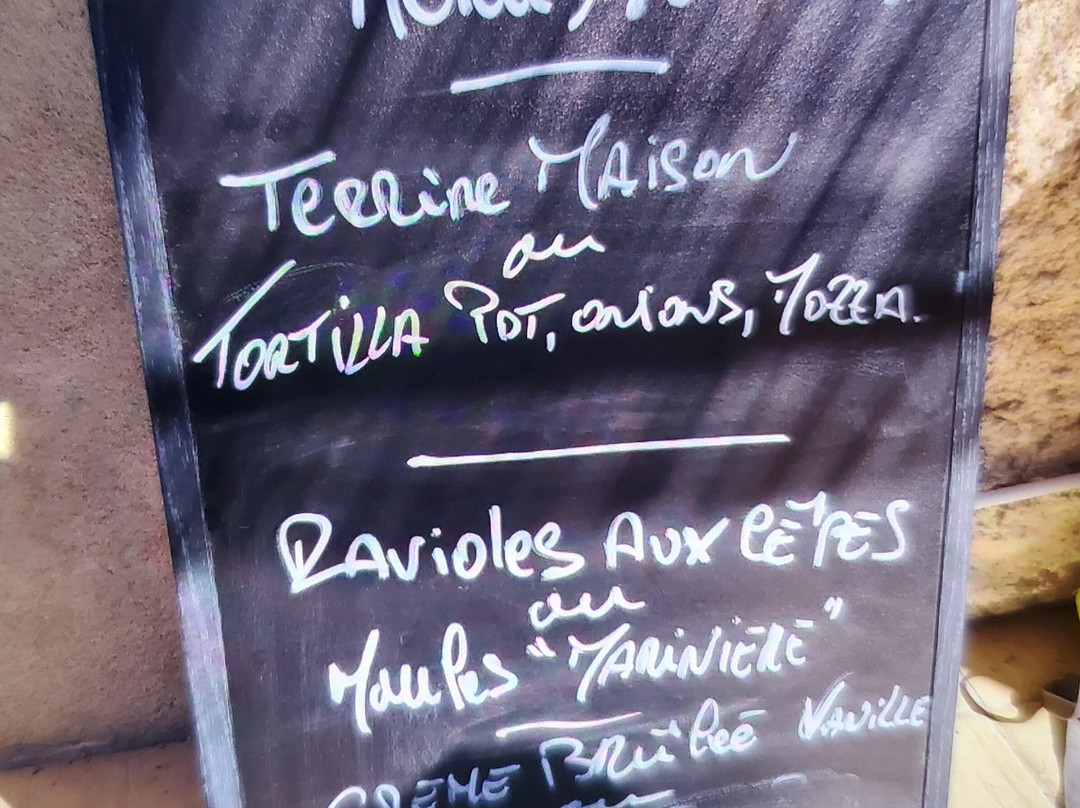 Terrine Maison
ou
Tortilla Pdt, onions, Mozza.
Ravioles aux Cèpes
ou
Moules "Marinière"
Crème Brûlée Vanille
ou